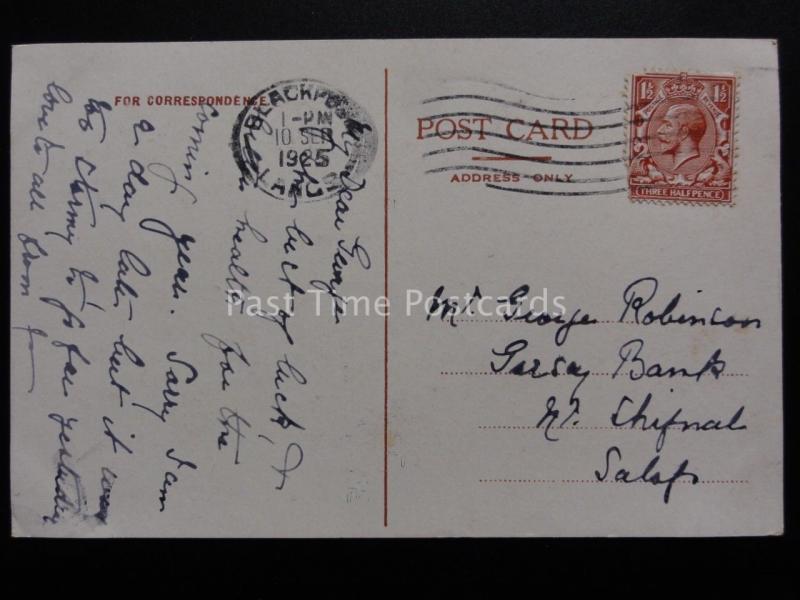 FOR CORRESPONDENCE
BLACKPOOL
1 - PM
10 SEP
1925
LANCS
POST CARD
ADDRESS ONLY
1½ 1½
POSTAGE REVENUE
THREE HALFPENCE
My Dear George
The best of luck, &
good health for the
coming year. Sorry I am
a day late but it was
to stormy to go far yesterday
love to all from
Mr. George Robinson
Bank
Nr. Shifnal
Salop
Past Time Postcards